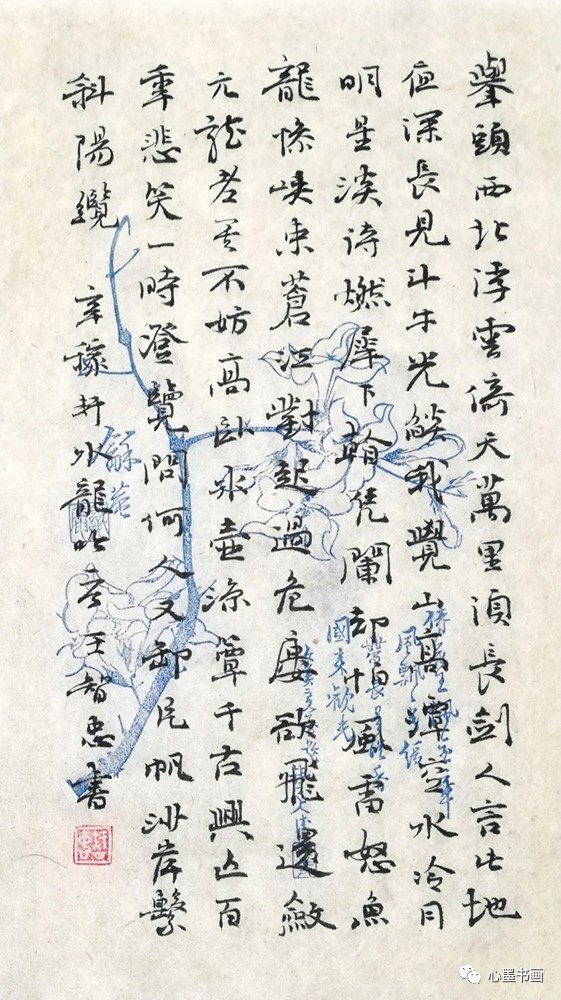 舉頭西北浮雲倚天萬里須長劍人言此地
夜深長見斗牛光燄我覺山高潭空水冷月
明星淡待燃犀下看凭闌却怕風雷怒魚
龍慘峽束蒼江對起過危樓欲飛還斂
元龍老矣不妨高臥冰壺涼簟千古興亡百
年悲笑一時澄覽問何人又卸片帆沙岸繫
斜陽纜 辛稼軒水龍吟 王智忠書
心墨书画